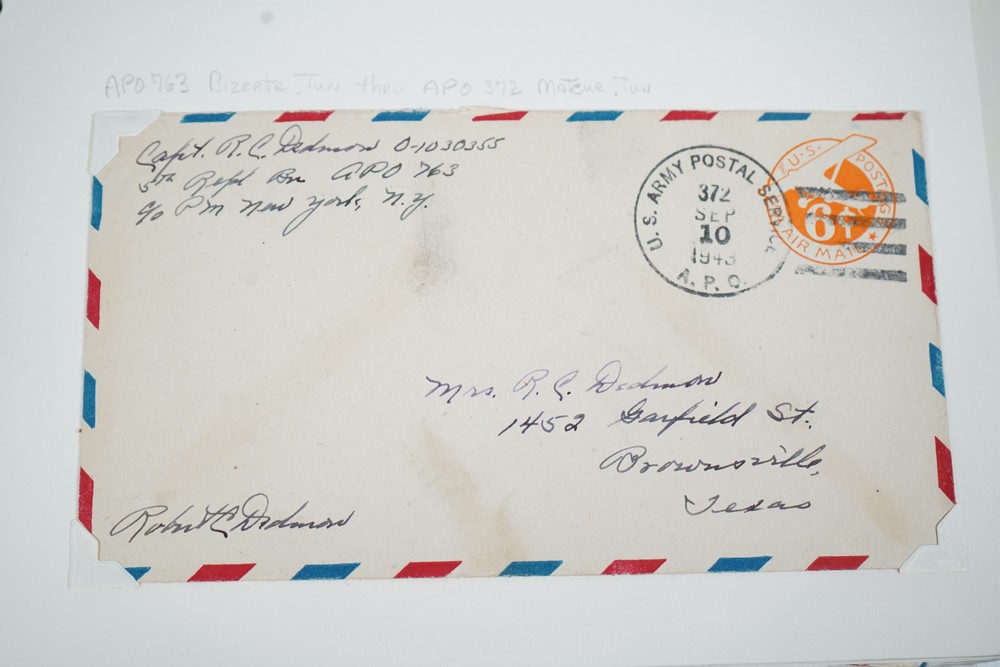 APO 763 Bizerte, Tun. thru APO 372 Mateur, Tun
Capt. R. C. Dedmon O-1030355
5th Repl Bn APO 763
c/o PM New York, N.Y.
U.S. ARMY POSTAL SERVICE
372
SEP
10
1943
A. P. O.
U.S. POSTAGE
6¢
AIR MAIL
Mrs. R. C. Dedmon
1452 Garfield St.
Brownsville,
Texas
Robert C Dedmon